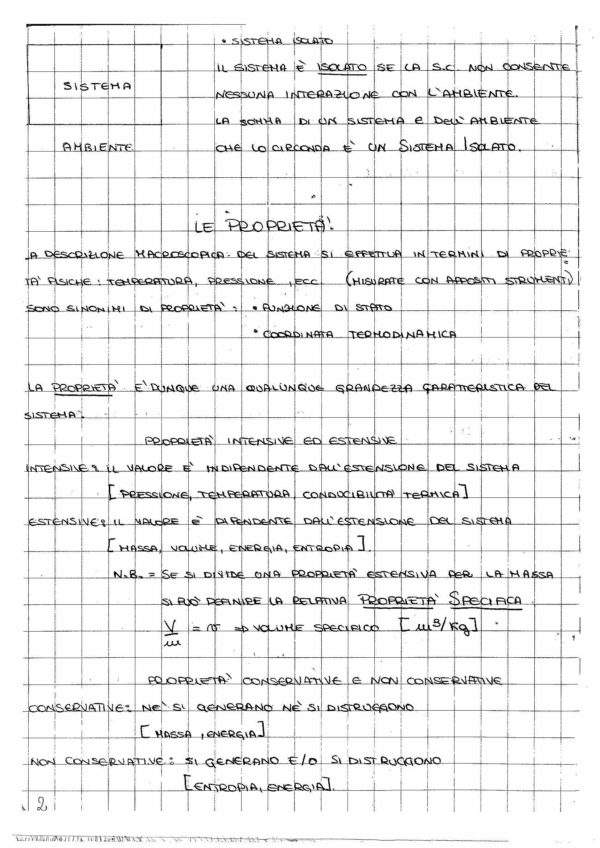 • SISTEMA ISOLATO
IL SISTEMA È ISOLATO SE LA S.C. NON CONSENTE
SISTEMA
NESSUNA INTERAZIONE CON L'AMBIENTE.
LA SOMMA DI UN SISTEMA E DELL'AMBIENTE
AMBIENTE
CHE LO CIRCONDA E' UN SISTEMA ISOLATO.
LE PROPRIETA'.
LA DESCRIZIONE MACROSCOPICA DEL SISTEMA SI EFFETTUA IN TERMINI DI PROPRIE
TA' FISICHE: TEMPERATURA, PRESSIONE, ECC. (MISURATE CON APPOSITI STRUMENTI)
SONO SINONIMI DI PROPRIETA': • FUNZIONE DI STATO
• COORDINATA TERMODINAMICA
LA PROPRIETA' E' DUNQUE UNA QUALUNQUE GRANDEZZA CARATTERISTICA DEL
SISTEMA.
PROPRIETA' INTENSIVE ED ESTENSIVE
INTENSIVE: IL VALORE E' INDIPENDENTE DALL'ESTENSIONE DEL SISTEMA
[PRESSIONE, TEMPERATURA, CONDUCIBILITA' TERMICA]
ESTENSIVE: IL VALORE E' DIPENDENTE DALL'ESTENSIONE DEL SISTEMA
[MASSA, VOLUME, ENERGIA, ENTROPIA].
N.B. = SE SI DIVIDE UNA PROPRIETA' ESTENSIVA PER LA MASSA
SI PUO' DEFINIRE LA RELATIVA PROPRIETA' SPECIFICA.
V/m = v ⇒ VOLUME SPECIFICO [m³/Kg]
PROPRIETA' CONSERVATIVE E NON CONSERVATIVE
CONSERVATIVE: NE' SI GENERANO NE' SI DISTRUGGONO
[MASSA, ENERGIA]
NON CONSERVATIVE: SI GENERANO E/O SI DISTRUGGONO
[ENTROPIA, ENERGIA].
2